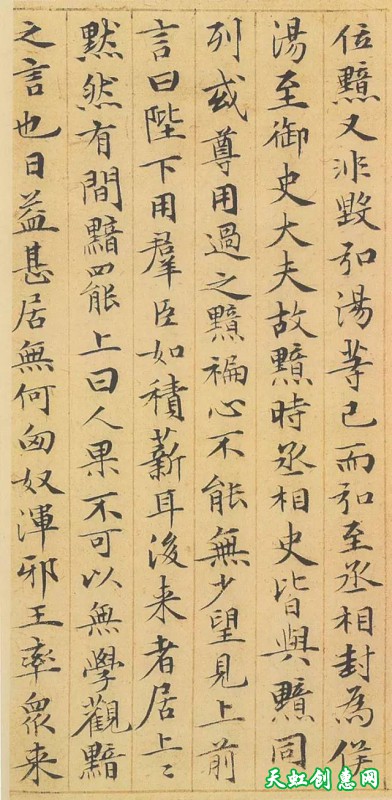 位黯又非毀弘湯等已而弘至丞相封為侯
湯至御史大夫故黯時丞相史皆與黯同
列或尊用過之黯褊心不能無少望見上前
言曰陛下用羣臣如積薪耳後来者居上〻
黙然有間黯罷上曰人果不可以無學觀黯
之言也日益甚居無何匈奴渾邪王率眾来
天虹创惠网